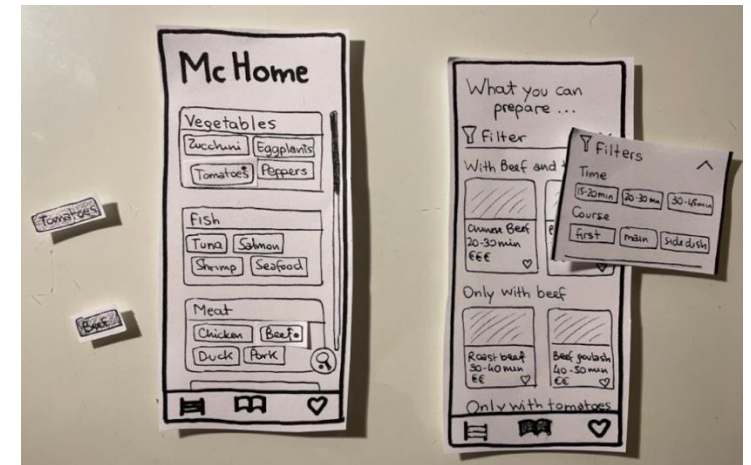 Tomatoes
Beef
Mc Home
Vegetables
Zucchini Eggplants
Tomatoes Peppers
Fish
Tuna Salmon
Shrimp Seafood
Meat
Chicken Beef
Duck Pork
What you can
prepare ...
Filter
With Beef and
Chinese Beef
20-30 min
€€€
Only with beef
Roast beef
30-40 min
€€
Beef goulash
40-50 min
€€
Only with tomatoes
Filters
Time
15-20 min 20-30 min 30-45 min
Course
first main side dish